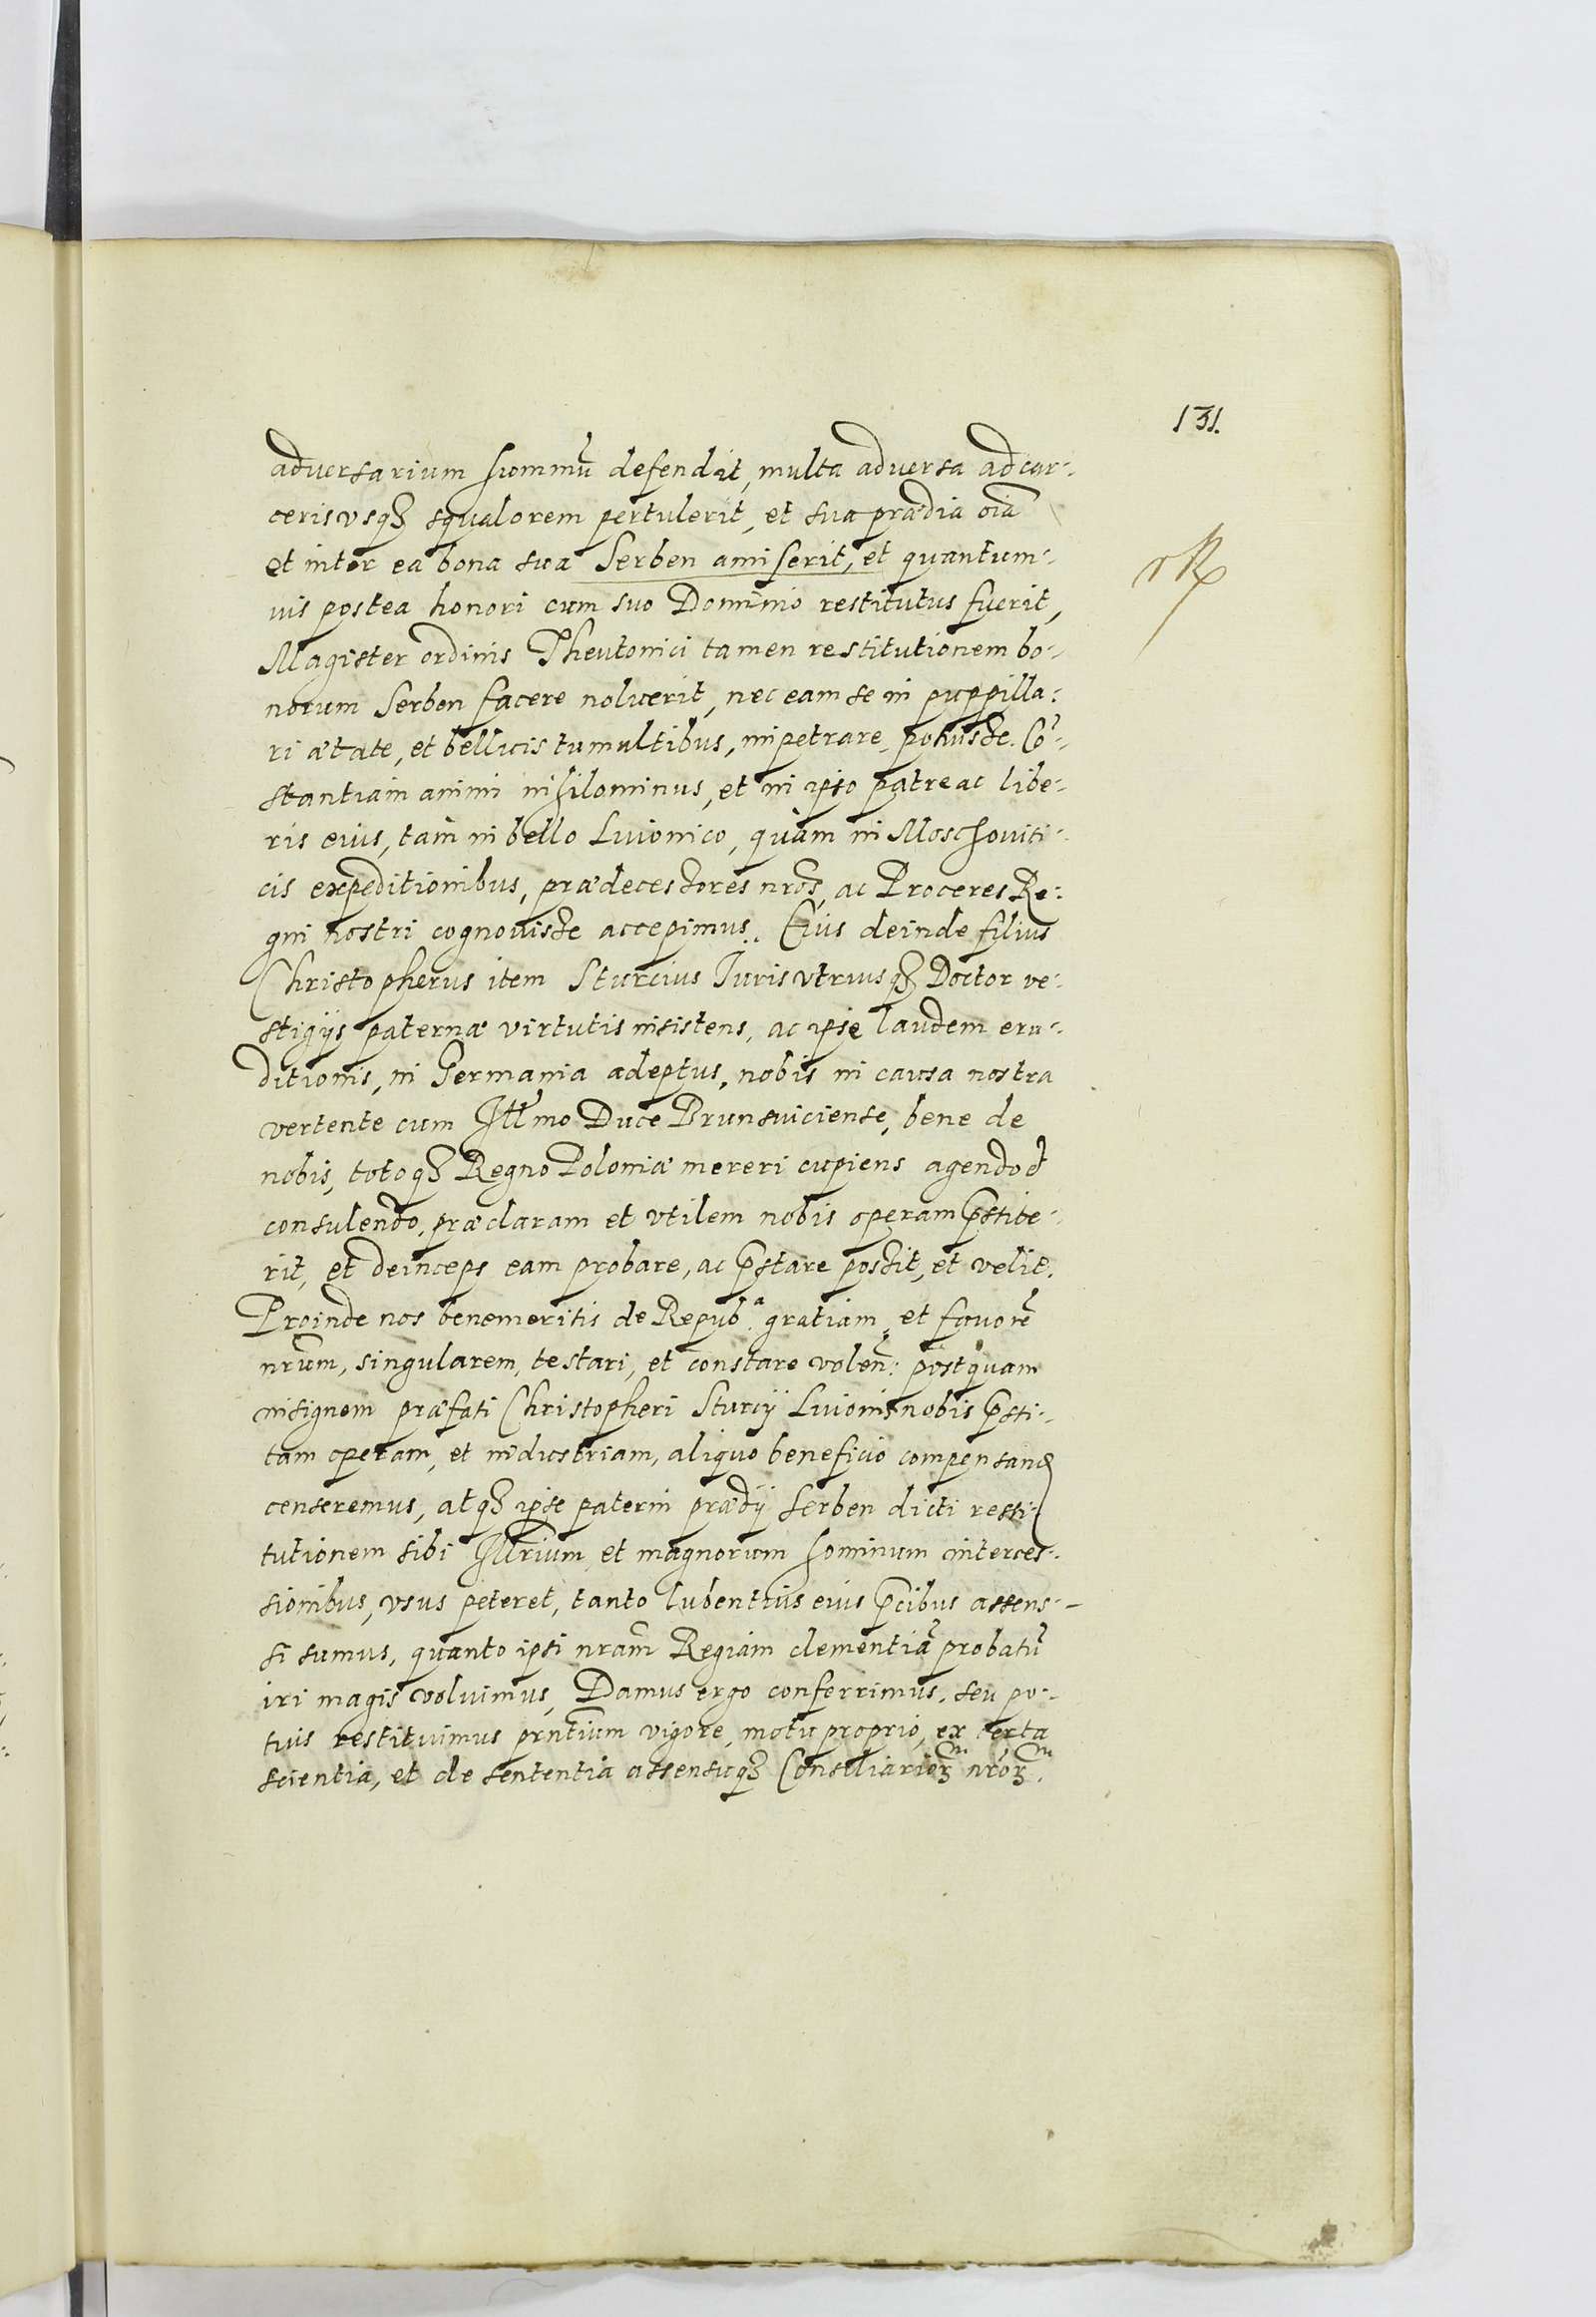 131.
adversarium summũ defendit, multa adversa ad car-
ceris vsqꝫ squalorem pertulerit, et sua prædia oīa
et inter ea bona sua Serben amiserit, et quantum-
uis postea honori cum suo Domino restitutus fuerit,
Magister ordinis Theutonici tamen restitutionem bo-
norum Serben facere noluerit, nec eam se in puppilla-
ri ætate, et bellicis tumultibus, impetrare potuisse. Cō-
stantiam animi nihilominus, et in ipso patre ac libe-
ris eius, tam in bello Liuonico, quàm in Moschouiti-
cis expeditionibus, prædecessores nr̃os, ac Proceres Re-
gni nostri cognouisse accepimus. Eius deinde filius
Christopherus item Sturcius Iuris vtriusqꝫ Doctor ve-
stigijs paternæ virtutis insistens, ac ipse laudem eru-
ditionis, in Germania adeptus, nobis in causa nostra
vertente cum Illmo Duce Brunsuiciense, bene de
nobis, totoqꝫ Regno Poloniæ mereri cupiens agendo et
consulendo, præclaram et vtilem nobis operam p̃stite-
rit, et deinceps eam probare, ac p̃stare possit, et velit.
Proinde nos benemeritis de Repub.ᵃ gratiam, et fauorẽ
nr̃um, singularem, testari, et constare volen̄: postquam
insignem præfati Christopheri Sturcij Liuonis nobis p̃sti-
tam operam, et industriam, aliquo beneficio compensand
censeremus, atqꝫ ipse paterni prædij Serben dicti resti-
tutionem sibi Illr̃ium et magnorum hominum interces-
sionibus, vsus peteret, tanto lubentius eius p̃cibus assens-
si sumus, quanto ipsi nr̃am Regiam clementiã probatũ
iri magis voluimus, Damus ergo conferrimus, seu po-
tius restituimus pr̃ntium vigore, motu proprio, ex certa
scientia, et de sententia assensuqꝫ Consiliarioꝝ nr̃oꝝ.